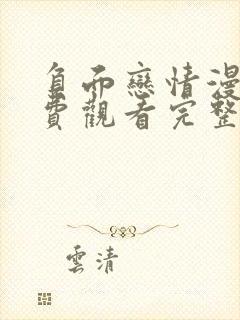 負而戀情漫
費觀看完整
雲清